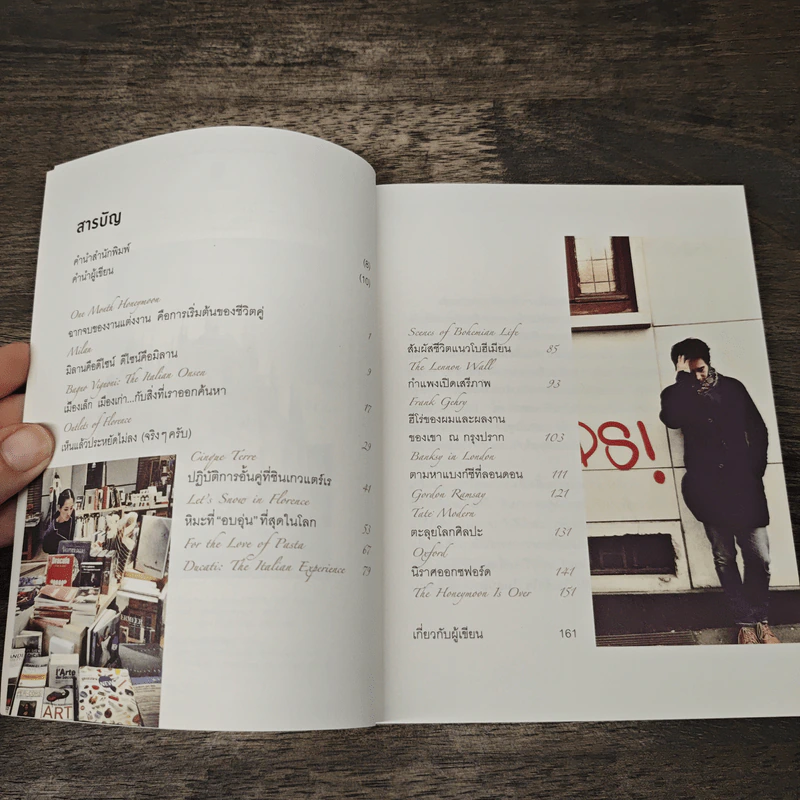 สารบัญ
คำนำสำนักพิมพ์ (8)
คำนำผู้เขียน (10)
One Month Honeymoon
ฉากจบของงานแต่งงาน คือการเริ่มต้นของชีวิตคู่ 1
Milan
มิลานคือดีไซน์ ดีไซน์คือมิลาน 9
Bagno Vignoni: The Italian Onsen
เมืองเล็ก เมืองเก่า...กับสิ่งที่เราออกค้นหา 17
Outlets of Florence
เห็นแล้วประหยัดไม่ลง (จริงๆ ครับ) 29
Cinque Terre
ปฏิบัติการอั้นคู่ที่ซินเกวแตร์เร 41
Let's Snow in Florence
หิมะที่ "อบอุ่น" ที่สุดในโลก 53
For the Love of Pasta 67
Ducati: The Italian Experience 79
l'Arte
ART
Scenes of Bohemian Life
สัมผัสชีวิตแนวโบฮีเมียน 85
The Lennon Wall
กำแพงเปิดเสรีภาพ 93
Frank Gehry
ฮีโร่ของผมและผลงาน
ของเขา ณ กรุงปราก 103
Banksy in London
ตามหาแบงก์ซีที่ลอนดอน 111
Gordon Ramsay 121
Tate Modern
ตะลุยโลกศิลปะ 131
Oxford
นิราศออกซฟอร์ด 141
The Honeymoon Is Over 151
เกี่ยวกับผู้เขียน 161
PS!